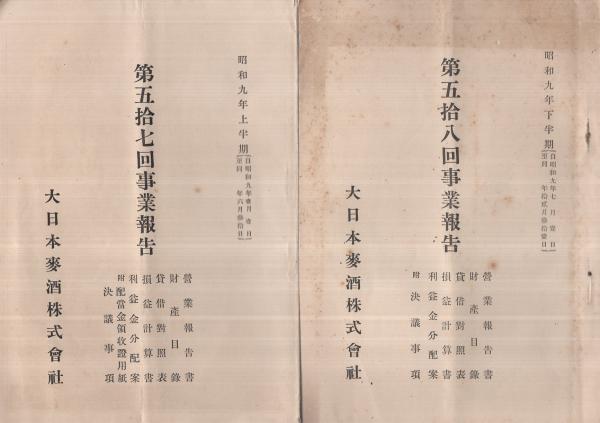 昭和九年下半期
自昭和九年七月壹日
至同年拾貳月參拾壹日
第五拾八回事業報告
營業報告書
財產目錄
貸借對照表
損益計算書
利益金分配案
附決議事項
大日本麥酒株式會社
昭和九年上半期
自昭和九年壹月壹日
至同年六月參拾日
第五拾七回事業報告
營業報告書
財產目錄
貸借對照表
損益計算書
利益金分配案
附配當金領收證用紙
決議事項
大日本麥酒株式會社